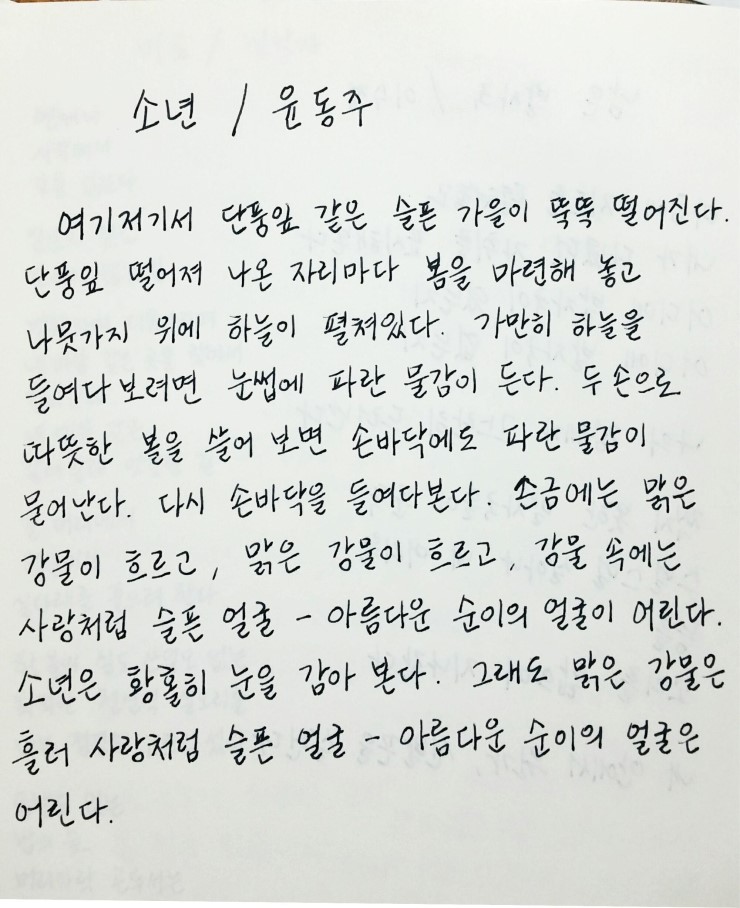 소년 / 윤동주
여기저기서 단풍잎 같은 슬픈 가을이 뚝뚝 떨어진다.
단풍잎 떨어져 나온 자리마다 봄을 마련해 놓고
나뭇가지 위에 하늘이 펼쳐있다. 가만히 하늘을
들여다 보려면 눈썹에 파란 물감이 든다. 두 손으로
따뜻한 볼을 쓸어 보면 손바닥에도 파란 물감이
묻어난다. 다시 손바닥을 들여다본다. 손금에는 맑은
강물이 흐르고, 맑은 강물이 흐르고, 강물 속에는
사랑처럼 슬픈 얼굴 - 아름다운 순이의 얼굴이 어린다.
소년은 황홀히 눈을 감아 본다. 그래도 맑은 강물은
흘러 사랑처럼 슬픈 얼굴 - 아름다운 순이의 얼굴은
어린다.